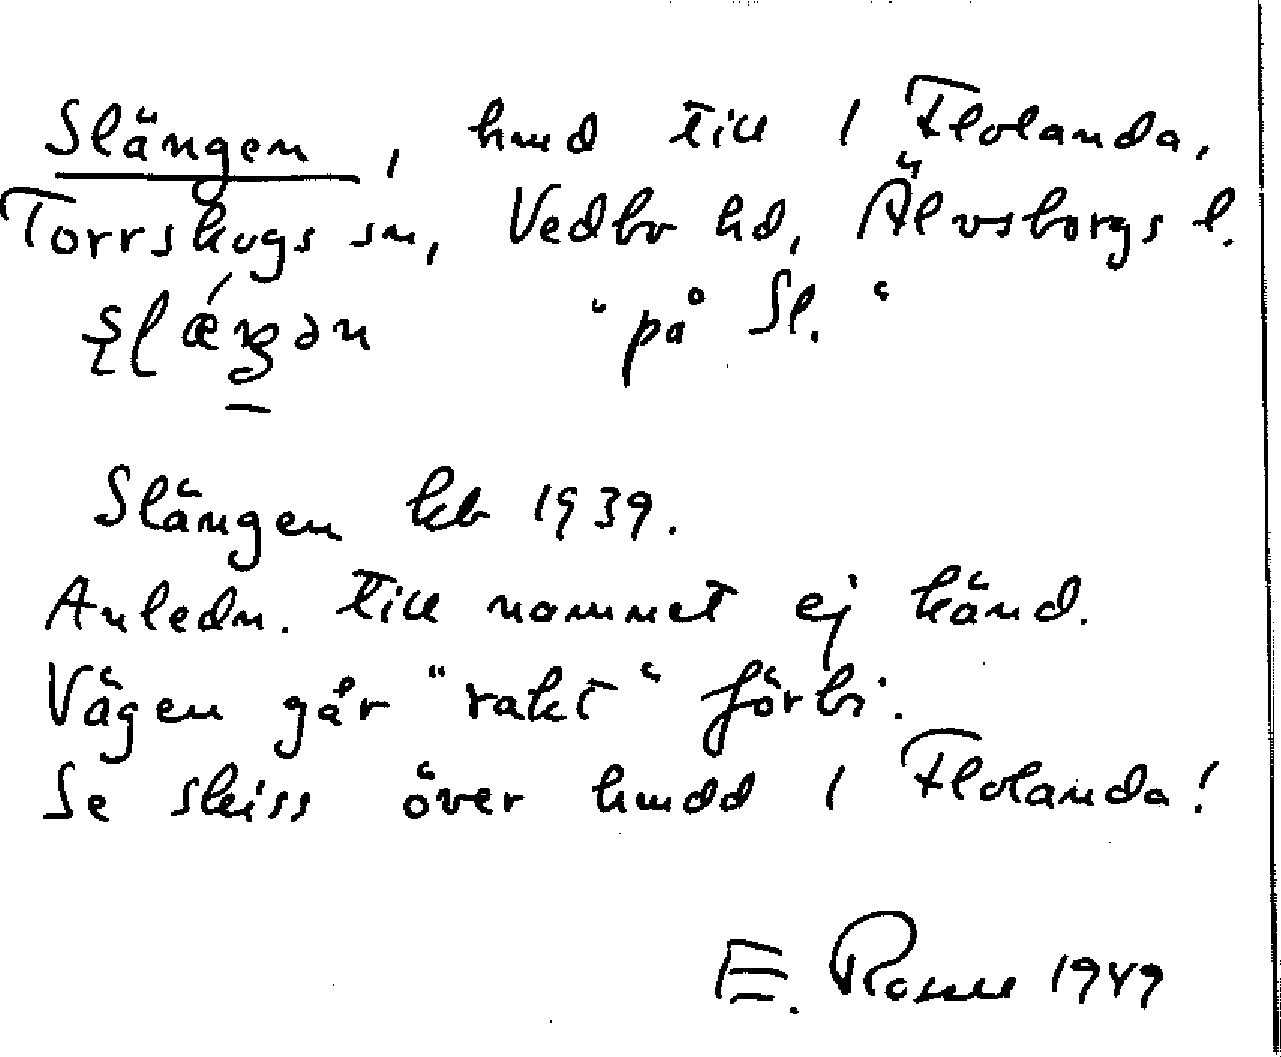 Slängen, hmd till 1 Flolanda,
Torrskogs sn, Vedbo hd, Älvsborgs l.
"på Sl."
Slängen kb 1939.
Anledn. till namnet ej känd.
Vägen går "rakt" förbi.
Se skiss över hmdd 1 Flolanda!
E. Rosell 1949